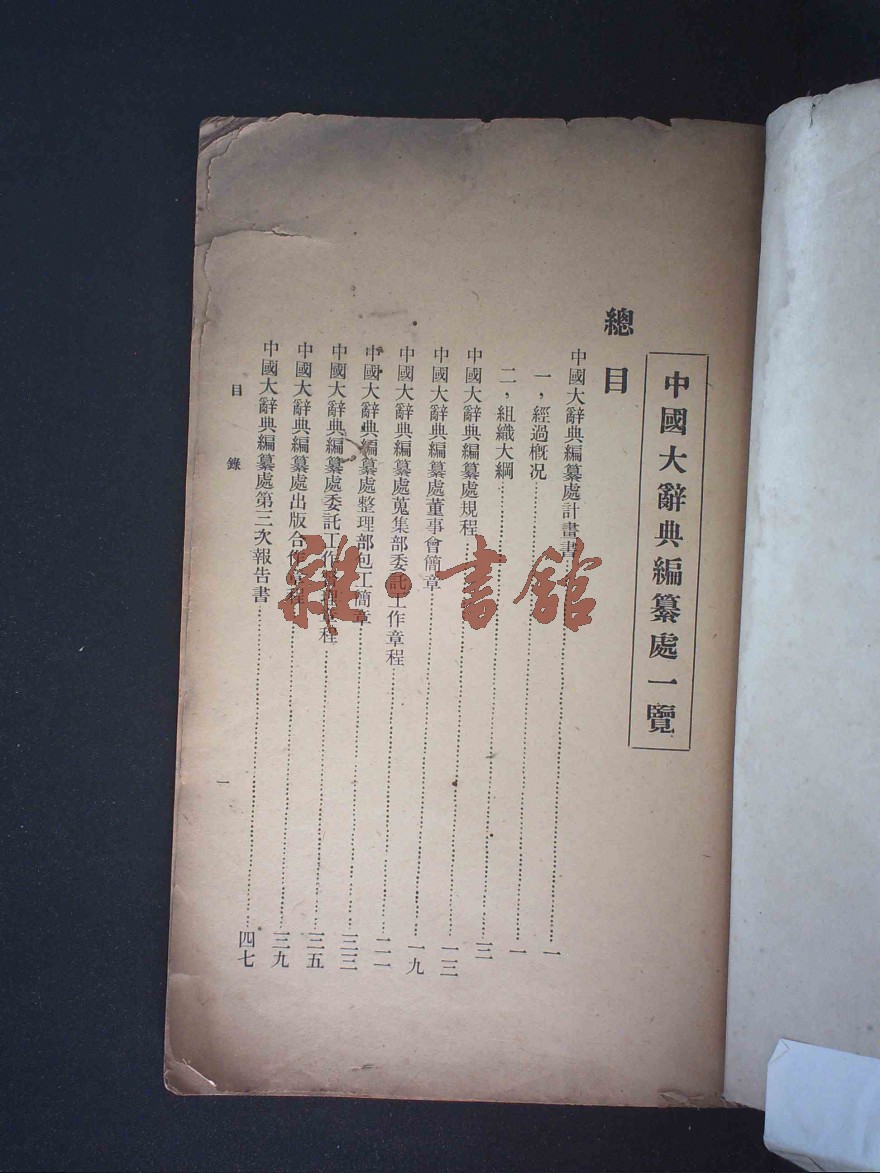 中國大辭典編纂處一覽
總目
中國大辭典編纂處計畫書…一
一，經過概況…一
二，組織大綱…三
中國大辭典編纂處規程…一三
中國大辭典編纂處董事會簡章…一九
中國大辭典編纂處蒐集部委託工作章程…二一
中國大辭典編纂處整理部包工簡章…三三
中國大辭典編纂處委託工作章程…三五
中國大辭典編纂處出版合作章程…三九
中國大辭典編纂處第三次報告書…四七
目錄
一
雜·書館